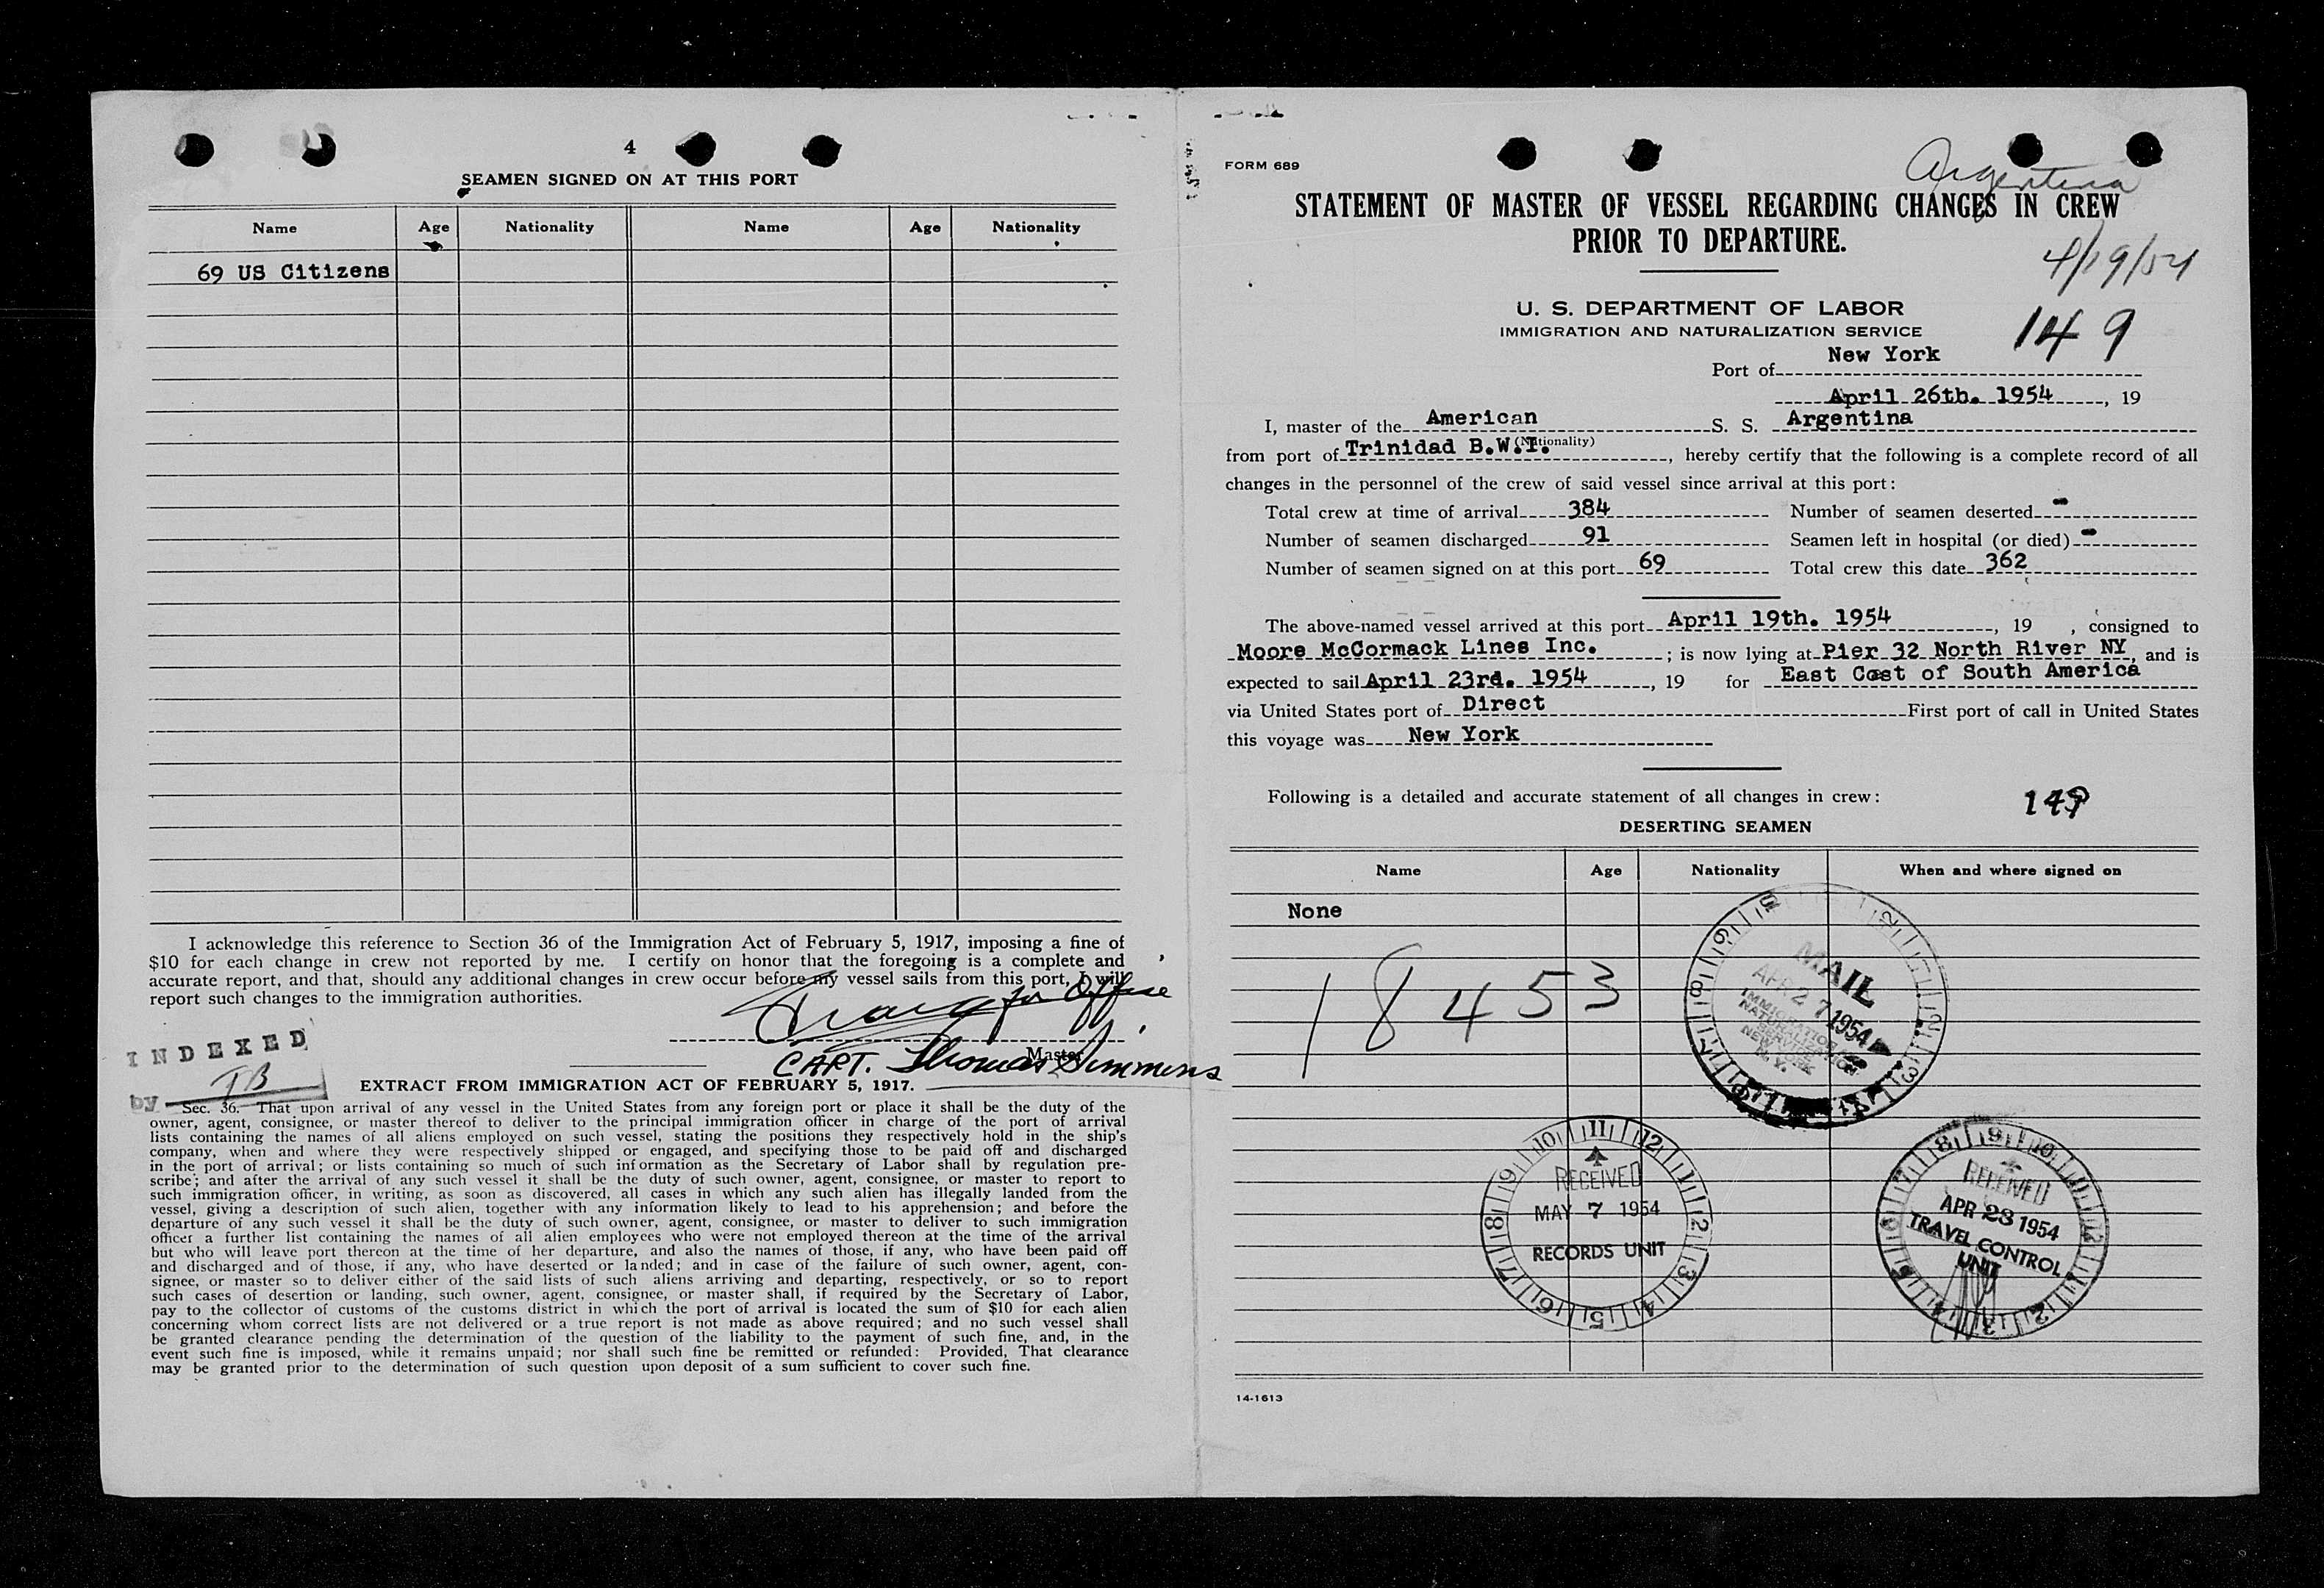 4
SEAMEN SIGNED ON AT THIS PORT
Name Age Nationality Name Age Nationality
69 US Citizens
I acknowledge this reference to Section 36 of the Immigration Act of February 5, 1917, imposing a fine of
$10 for each change in crew not reported by me. I certify on honor that the foregoing is a complete and
accurate report, and that, should any additional changes in crew occur before my vessel sails from this port, I will
report such changes to the immigration authorities.
for Office
Master
CAPT. Thomas Simmons
INDEXED
by TB
EXTRACT FROM IMMIGRATION ACT OF FEBRUARY 5, 1917.
Sec. 36. That upon arrival of any vessel in the United States from any foreign port or place it shall be the duty of the
owner, agent, consignee, or master thereof to deliver to the principal immigration officer in charge of the port of arrival
lists containing the names of all aliens employed on such vessel, stating the positions they respectively hold in the ship's
company, when and where they were respectively shipped or engaged, and specifying those to be paid off and discharged
in the port of arrival; or lists containing so much of such information as the Secretary of Labor shall by regulation pre-
scribe; and after the arrival of any such vessel it shall be the duty of such owner, agent, consignee, or master to report to
such immigration officer, in writing, as soon as discovered, all cases in which any such alien has illegally landed from the
vessel, giving a description of such alien, together with any information likely to lead to his apprehension; and before the
departure of any such vessel it shall be the duty of such owner, agent, consignee, or master to deliver to such immigration
officer a further list containing the names of all alien employees who were not employed thereon at the time of the arrival
but who will leave port thereon at the time of her departure, and also the names of those, if any, who have been paid off
and discharged and of those, if any, who have deserted or landed; and in case of the failure of such owner, agent, con-
signee, or master so to deliver either of the said lists of such aliens arriving and departing, respectively, or so to report
such cases of desertion or landing, such owner, agent, consignee, or master shall, if required by the Secretary of Labor,
pay to the collector of customs of the customs district in which the port of arrival is located the sum of $10 for each alien
concerning whom correct lists are not delivered or a true report is not made as above required; and no such vessel shall
be granted clearance pending the determination of the question of the liability to the payment of such fine, and, in the
event such fine is imposed, while it remains unpaid; nor shall such fine be remitted or refunded: Provided, That clearance
may be granted prior to the determination of such question upon deposit of a sum sufficient to cover such fine.
FORM 689
Argentina
STATEMENT OF MASTER OF VESSEL REGARDING CHANGES IN CREW
PRIOR TO DEPARTURE.
4/19/54
U. S. DEPARTMENT OF LABOR
IMMIGRATION AND NATURALIZATION SERVICE
149
Port of New York
April 26th. 1954, 19
I, master of the American S. S. Argentina
(Nationality)
from port of Trinidad B.W.I., hereby certify that the following is a complete record of all
changes in the personnel of the crew of said vessel since arrival at this port:
Total crew at time of arrival 384 Number of seamen deserted -
Number of seamen discharged 91 Seamen left in hospital (or died) -
Number of seamen signed on at this port 69 Total crew this date 362
The above-named vessel arrived at this port April 19th. 1954, 19 , consigned to
Moore McCormack Lines Inc. ; is now lying at Pier 32 North River NY, and is
expected to sail April 23rd. 1954, 19 for East Coast of South America
via United States port of Direct First port of call in United States
this voyage was New York
Following is a detailed and accurate statement of all changes in crew:
149
DESERTING SEAMEN
Name Age Nationality When and where signed on
None
18453
MAIL
APR 27 1954
IMMIGRATION
NATURALIZATION
SERVICE
NEW YORK
N.Y.
RECEIVED
MAY 7 1954
RECORDS UNIT
RECEIVED
APR 28 1954
TRAVEL CONTROL
UNIT
14-1613